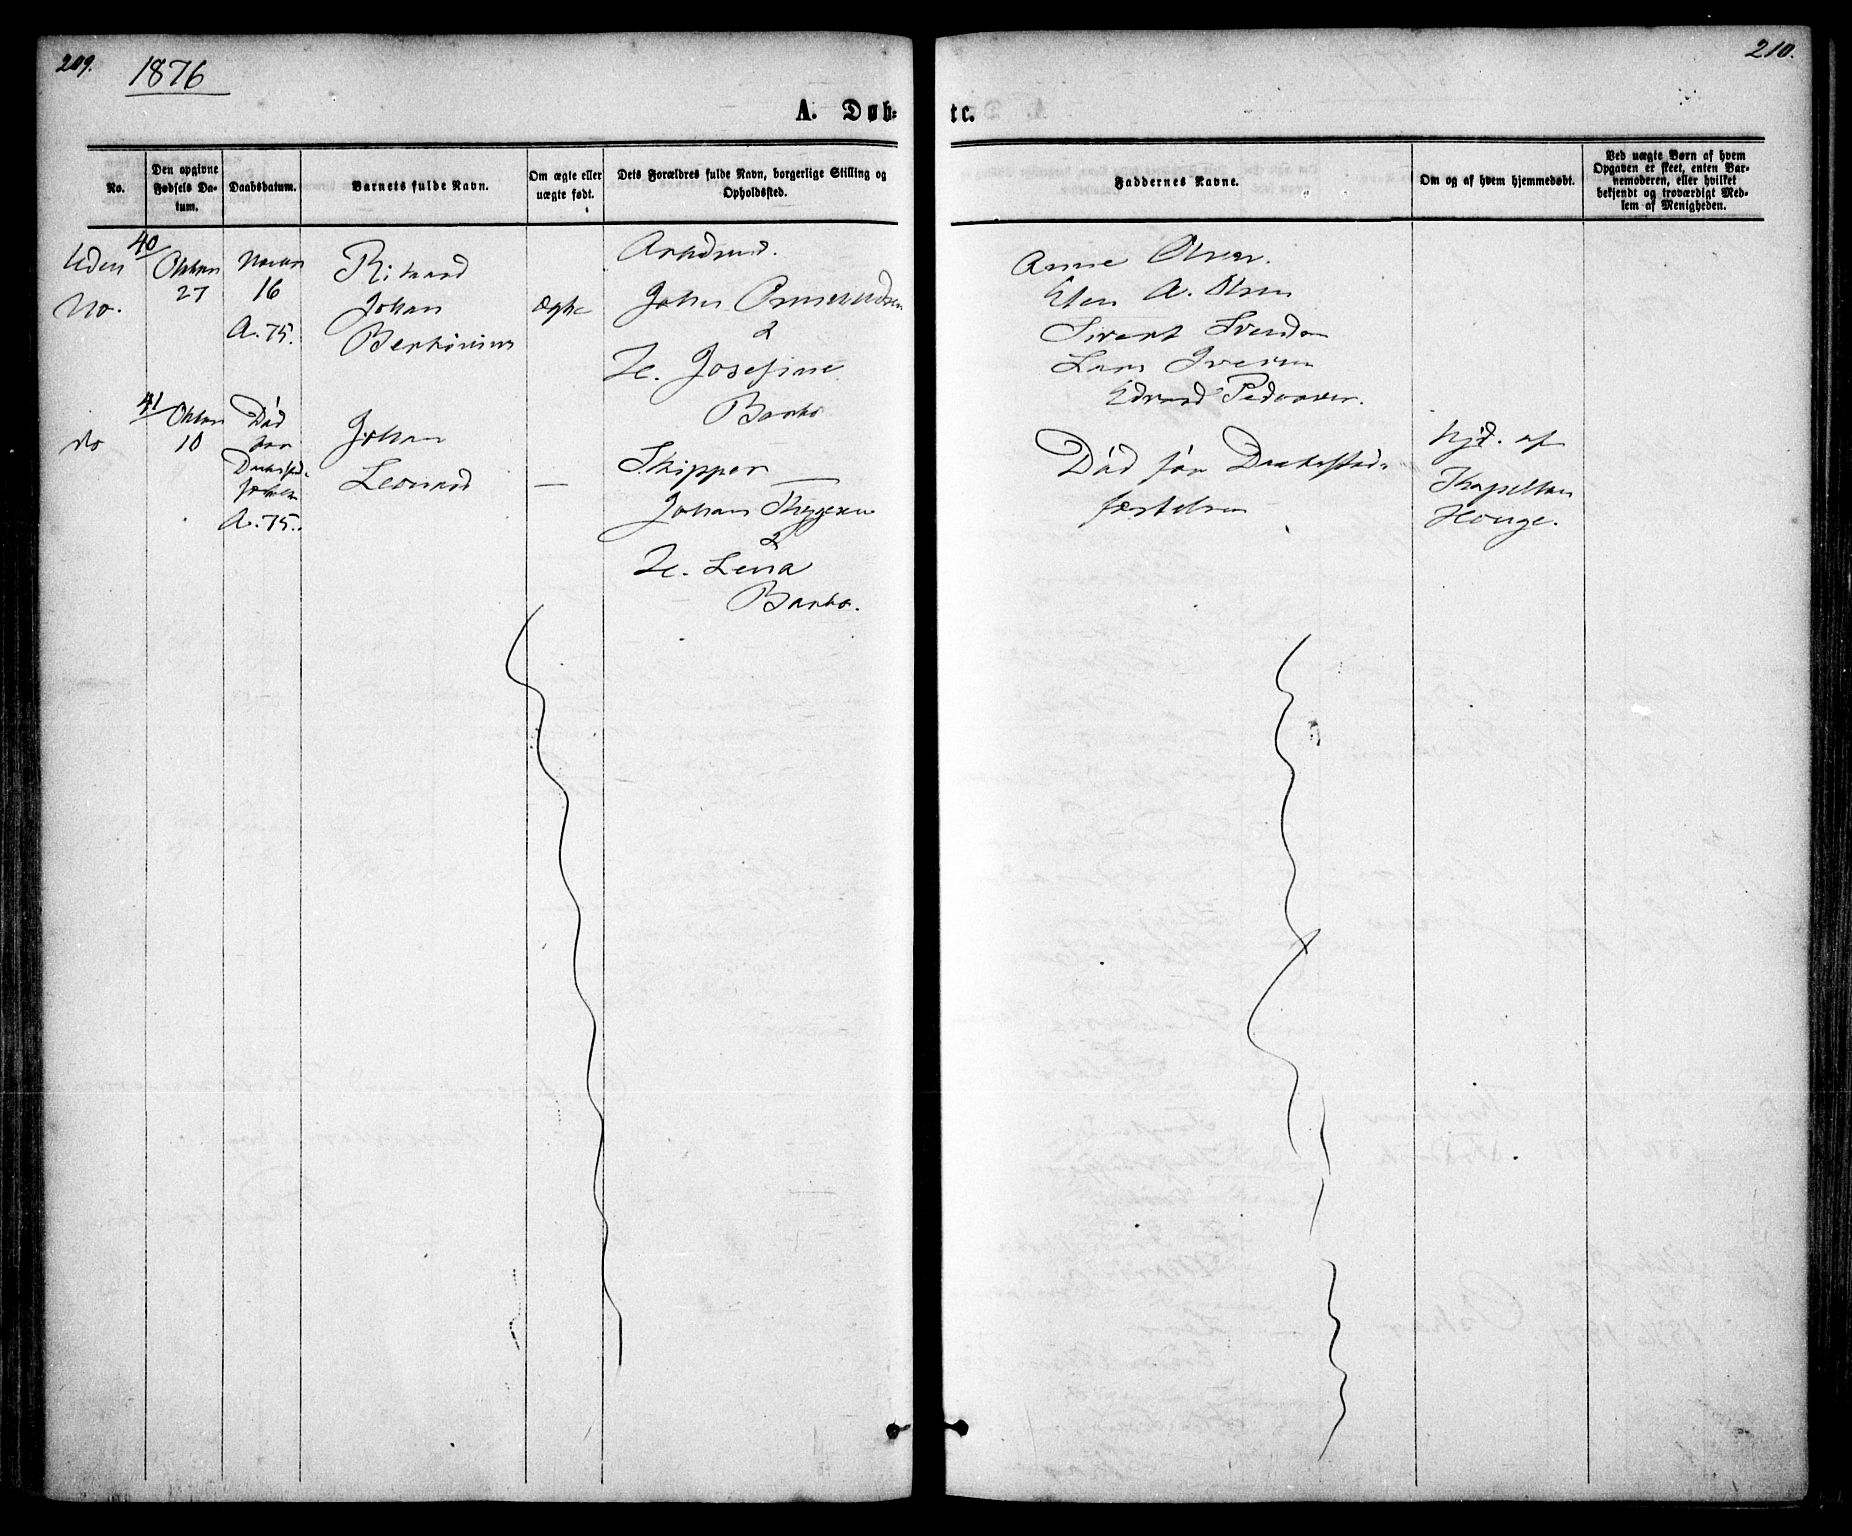 209.
1876
A. Døb-
No.
Den opgivne Fødsels Da-tum.
Daabsdatum.
Barnets fulde Navn.
Om ægte eller uægte født.
Dets Forældres fulde Navn, borgerlige Stilling og Opholdssted.
40
Uden
No.
27
16
A. 75.
Johan
ægte
Johan
&
H. Josefine
Barbo
41
do
10
Død
før
A. 75.
Johan
Leonard
—
Skipper
Johan
&
H. Lena
Barbo.
210.
te.
Faddernes Navne.
Om og af hvem hjemmedøbt.
Ved uægte Børn af hvem Opgaven er skeet, enten Bar-nemoderen, eller hvilket bekjendt og troværdigt Med-lem af Menigheden.
Anne Olsen.
A. Olsen
Sivert
Lars Iversen
Edvard Pedersen.
Død før Daabsstad-
fæstelsen
hjd. af
Kapellan
Houge.